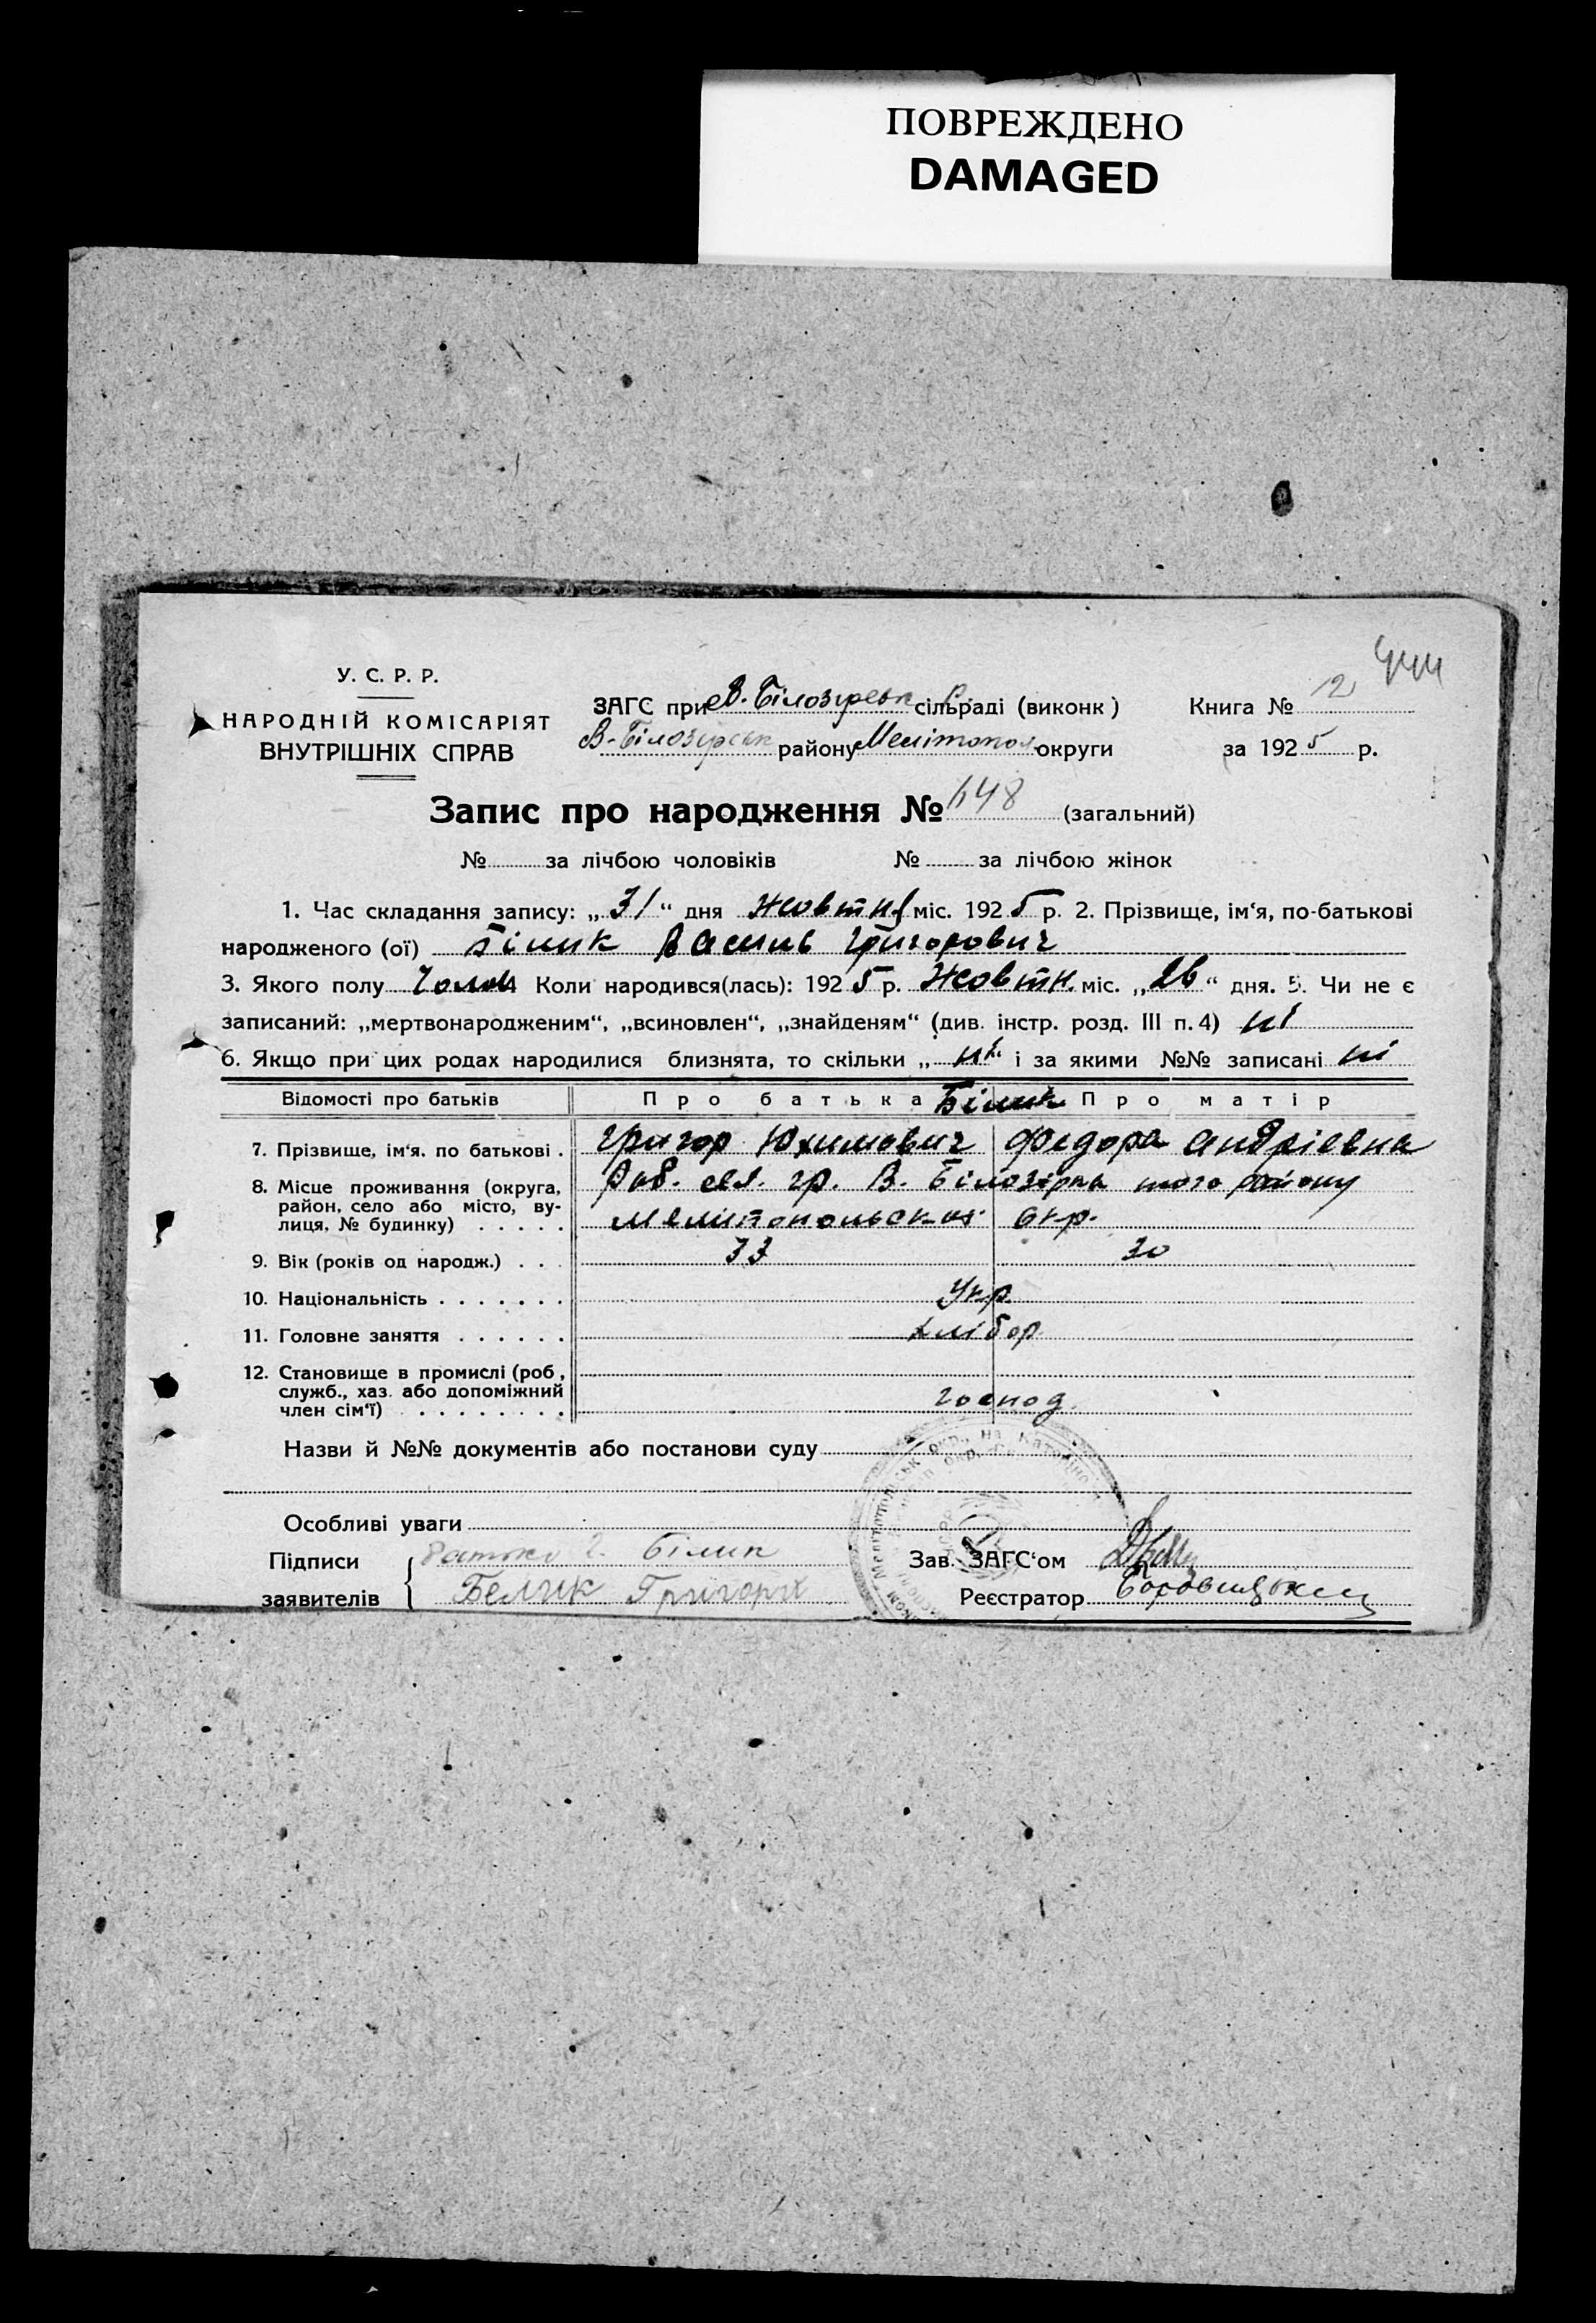 ПОВРЕЖДЕНО
DAMAGED
У. С. Р. Р.
НАРОДНІЙ КОМІСАРІЯТ
ВНУТРІШНІХ СПРАВ
ЗАГС при В. Білозірськ сільраді (виконк)
Книга № 12
В-Білозірськ району Мелітопол округи
за 1925 р.
Запис про народження № 648 (загальний)
№ за лічбою чоловіків № за лічбою жінок
1. Час складання запису: „31“ дня Жовтня міс. 1925 р. 2. Прізвище, ім‘я, по-батькові
народженого (ої) Білик Василь Григорович
3. Якого полу Чолов Коли народився(лась): 1925 р. Жовтн. міс. „26“ дня. 5. Чи не є
записаний: „мертвонародженим“, „всиновлен“, „знайденям“ (див. інстр. розд. III п. 4) ні
6. Якщо при цих родах народилися близнята, то скільки „ні“ і за якими №№ записані ні
Відомості про батьків Про батька Білик Про матір
7. Прізвище, ім‘я. по батькові . Григор Юхимович Федора Андріевна
8. Місце проживання (округа, район, село або місто, вулиця, № будинку) . . . . . гр. В. Білозірка того району
Мелитопольскоі Окр.
9. Вік (років од народж.) . . . 33 30
10. Національність . . . . . . . Укр.
11. Головне заняття . . . . . . хлібор.
12. Становище в промислі (роб., служб., хаз. або допоміжний член сім‘ї) . . . . . . . . . господ.
Назви й №№ документів або постанови суду
Особливі уваги
Підписи заявителів Батько Г. Білик
Белик Григорій
Зав. ЗАГС‘ом
Реєстратор